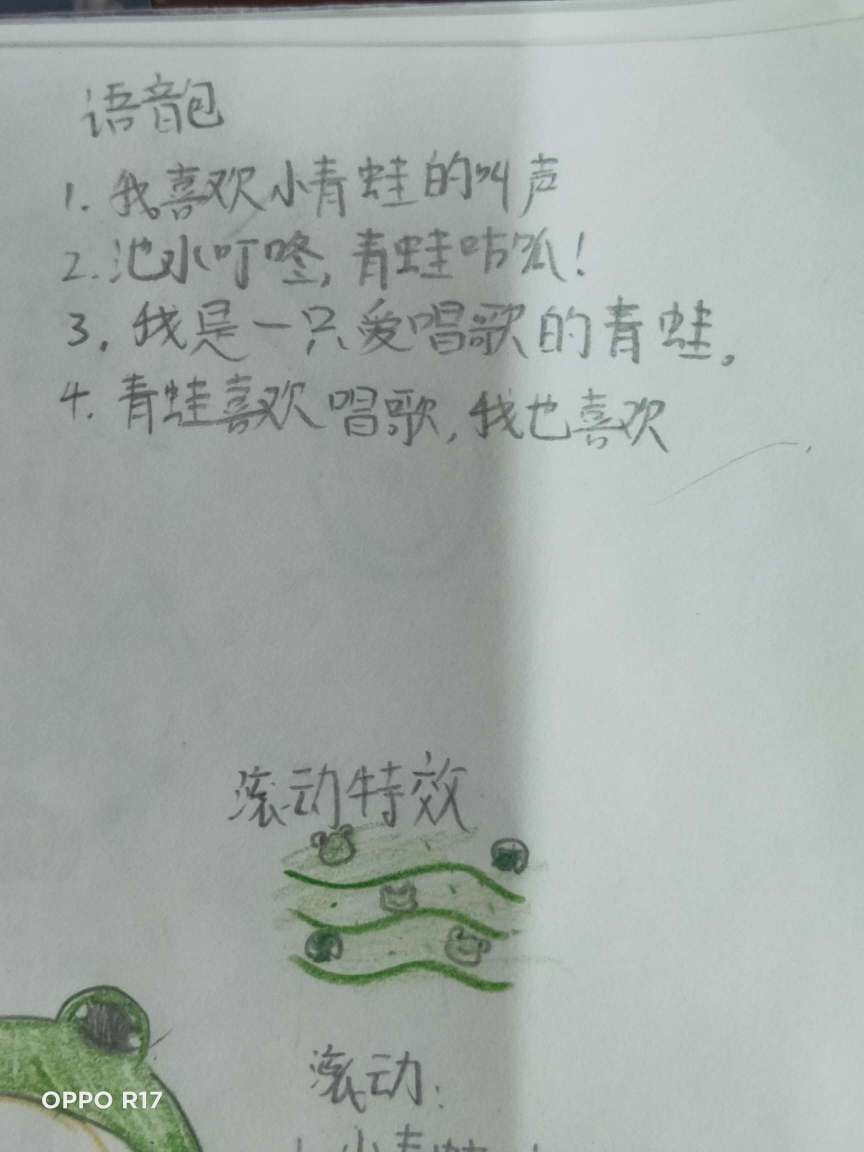 语音包
1. 我喜欢小青蛙的叫声
2. 池水叮咚, 青蛙咕呱!
3. 我是一只爱唱歌的青蛙。
4. 青蛙喜欢唱歌, 我也喜欢
滚动特效
滚动:
OPPO R17